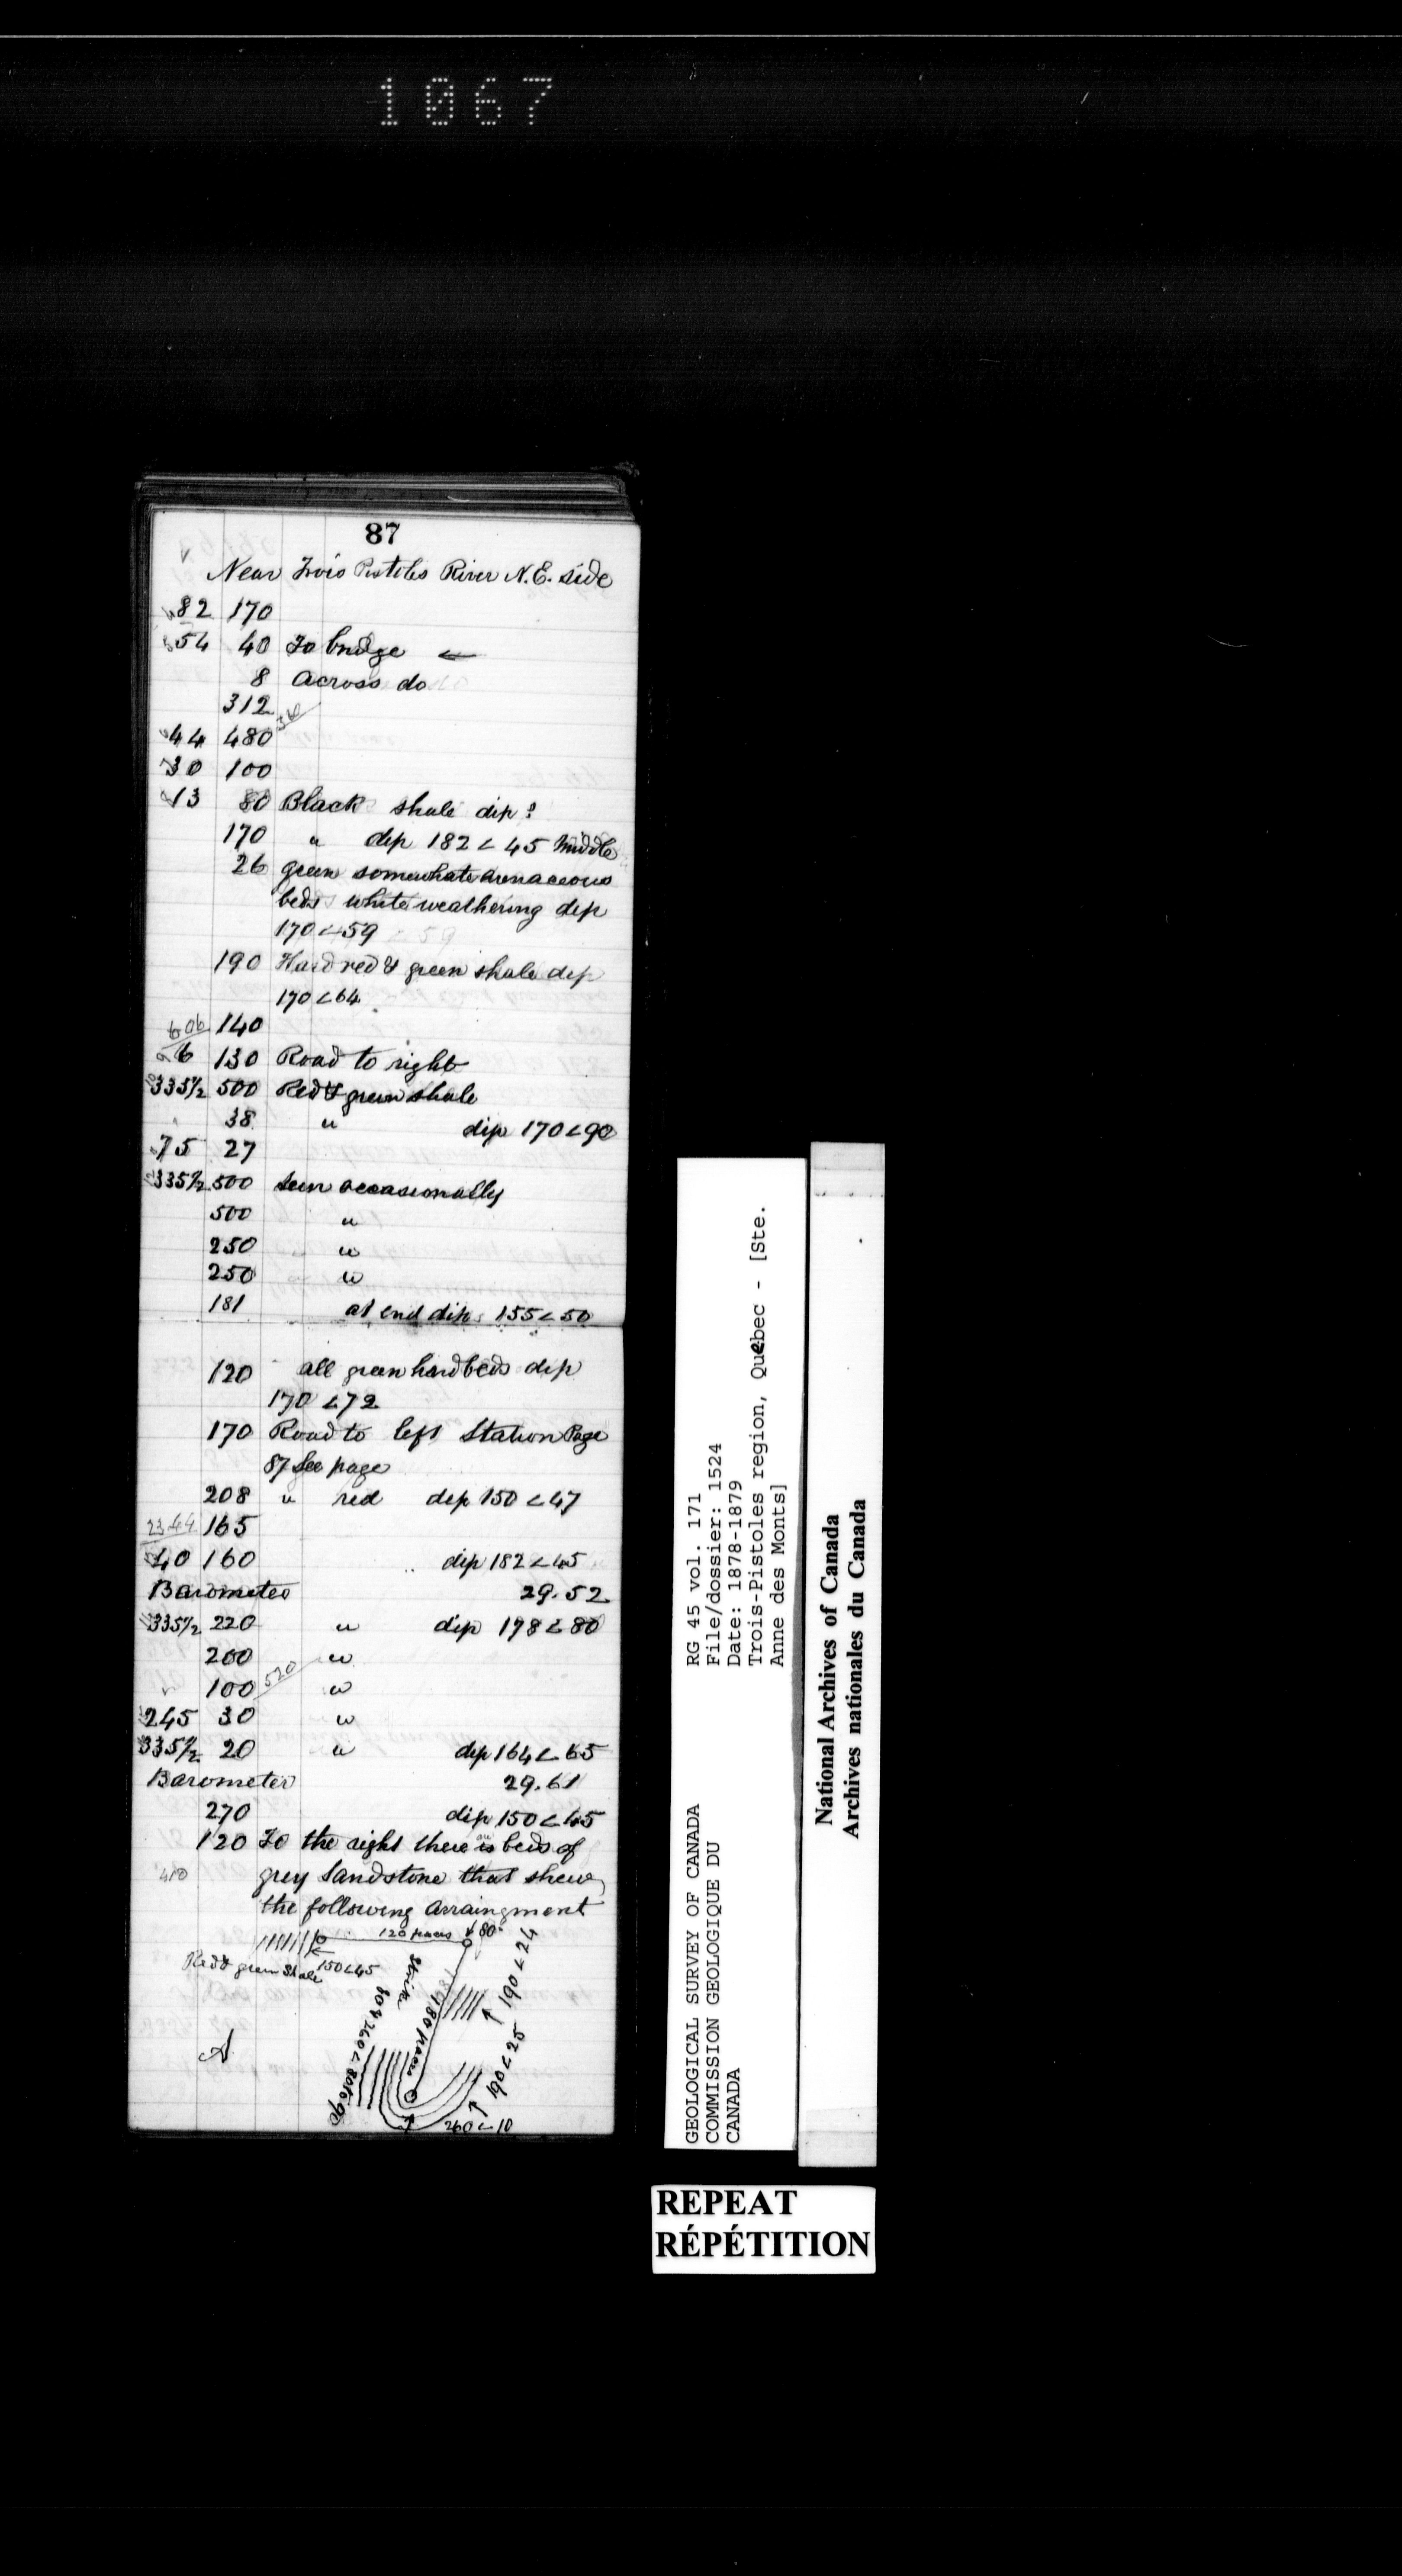 1067
87
Near Trois Pistoles River N.E. side
82 170
54 40 To bridge ←
8 Across do
312
44 480
30 100
13 80 Black shale dip ?
170 " dip 182 < 45 Middle
26 green somewhat arenaceous
beds white weathering dip
170 < 59
190 Hard red & green shale dip
170 < 64
606 140
6 130 Road to right
335½ 500 Red & green shale
38 " dip 170 < 90
75 27
335½ 500 seen occasionally
500 "
250 "
250 "
181 at end dip 155 < 50
120 all green hard beds dip
170 < 72
170 Road to left Station Page
87 See page
208 " red dip 150 < 47
2344 165
40 160 " dip 182 < 45
Barometer 29.52
335½ 220 " dip 178 < 80
200 "
100 520 "
245 30 "
335½ 20 " dip 164 < 65
Barometer 29.61
270 dip 150 < 45
120 To the right there is beds of
410 grey Sandstone that shew
the following arraingment
120 paces 80
Red & green Shale 150 < 45
Strike
80 & 260 < 80 to 90
180 paces
190 < 24
190 < 25
260 < 10
A
GEOLOGICAL SURVEY OF CANADA
COMMISSION GEOLOGIQUE DU
CANADA
RG 45 vol. 171
File/dossier: 1524
Date: 1878-1879
Trois-Pistoles region, Quebec - [Ste.
Anne des Monts]
National Archives of Canada
Archives nationales du Canada
REPEAT
RÉPÉTITION